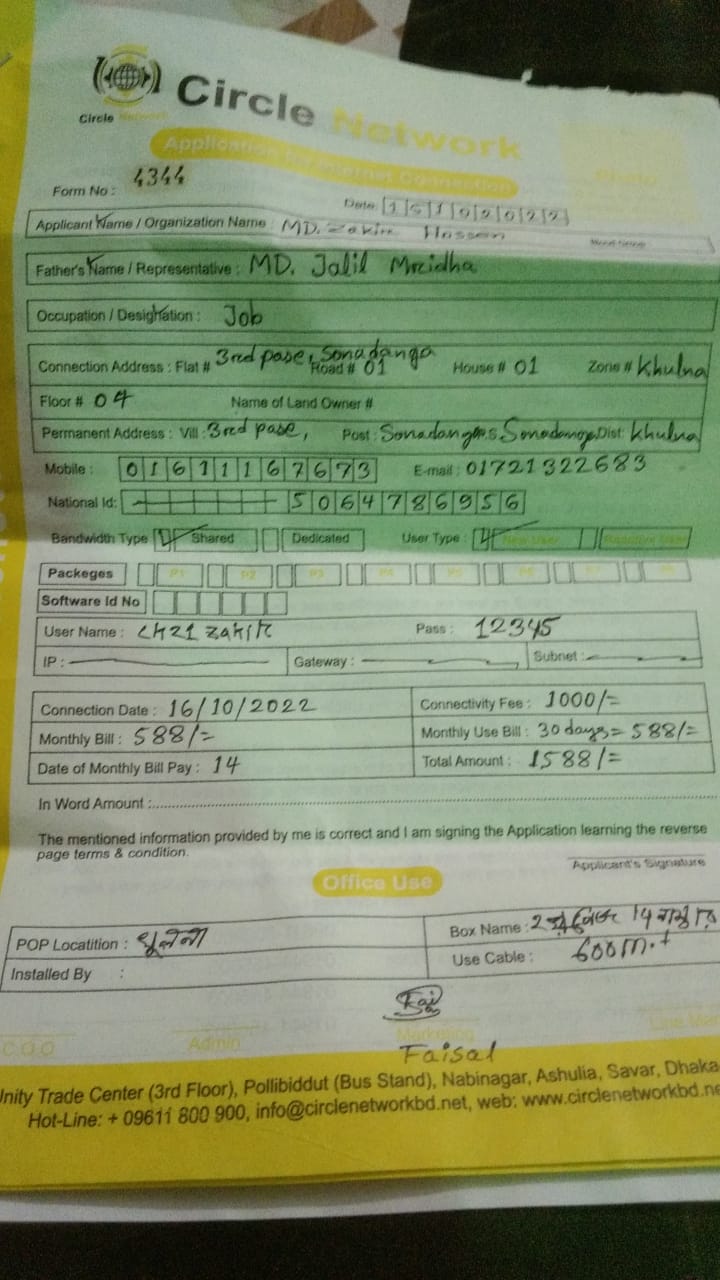 Circle Network
Circle Network
Application for Internet Connection
Photo
Form No : 4344
Date 15102022
Applicant Name / Organization Name : MD. Zakir Hossen
Father's Name / Representative : MD. Jalil Mridha
Occupation / Designation : Job
Connection Address : Flat # 3rd pase, Sonadanga Road # 01 House # 01 Zone # Khulna
Floor # 04 Name of Land Owner #
Permanent Address : Vill : 3rd pase, Post : Sonadanga P.S Sonadanga Dist: Khulna
Mobile : 01611167673 E-mail : 01721322683
National Id: 5064786956
Bandwidth Type Shared Dedicated User Type : New User
Packeges P1 P2 P3 P4 P5 P6 P7 P8
Software Id No
User Name : Pass : 12345
IP : Gateway : Subnet :
Connection Date : 16/10/2022 Connectivity Fee : 1000/=
Monthly Bill : 588/= Monthly Use Bill : 30 days = 588/=
Date of Monthly Bill Pay : 14 Total Amount : 1588/=
In Word Amount :
The mentioned information provided by me is correct and I am signing the Application learning the reverse
page terms & condition.
Applicant's Signature
Office Use
POP Locatition : খুলনা Box Name :
Installed By : Use Cable : 600 m.t
C.O.O Admin Marketing
Faisal
Unity Trade Center (3rd Floor), Pollibiddut (Bus Stand), Nabinagar, Ashulia, Savar, Dhaka
Hot-Line: + 09611 800 900, info@circlenetworkbd.net, web: www.circlenetworkbd.ne